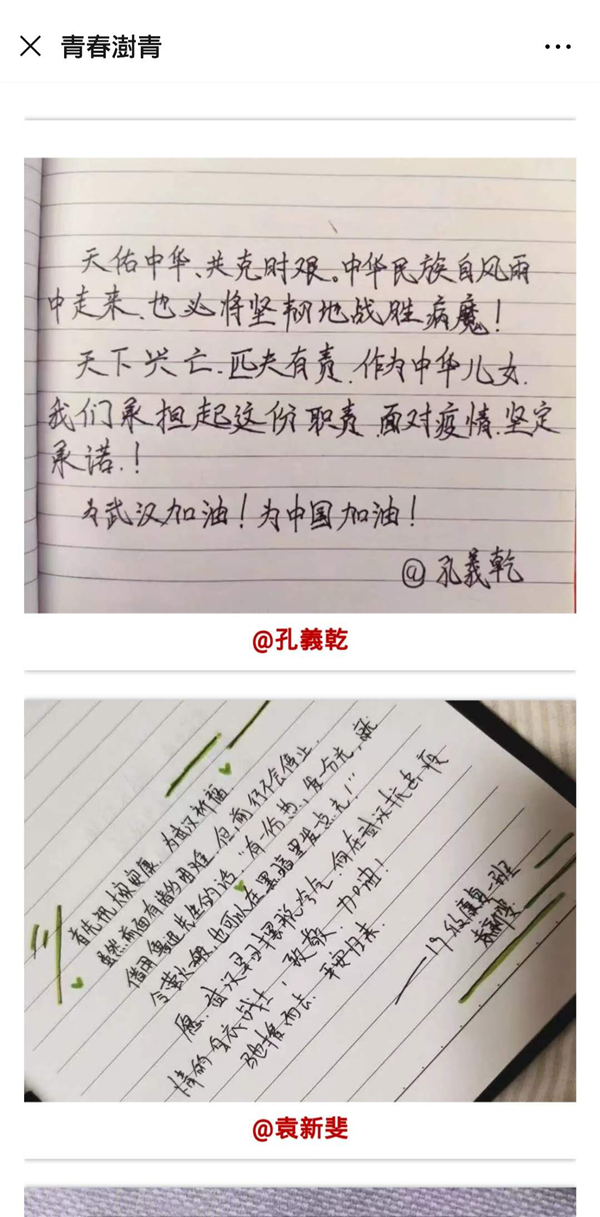 青春澍青
天佑中华、共克时艰。中华民族自风雨
中走来、也必将坚韧地战胜病魔！
天下兴亡、匹夫有责、作为中华儿女、
我们承担起这份职责、面对疫情、坚定
承诺、！
为武汉加油！为中国加油！
@孔義乾
@孔義乾
首先祝大家健康，为武汉祈福
虽然前面有诸的困难，但，前行不会停止，
借用鲁迅先生的话：“有一份热，发一份光，就
令萤火般，也可以在黑暗里发点光！”
愿：武汉早日摆脱冷气，向在武汉抗击疫
情的白衣战士，致敬，加油！
驰惜而去，平安归来
——19级康复一班
袁新斐
@袁新斐